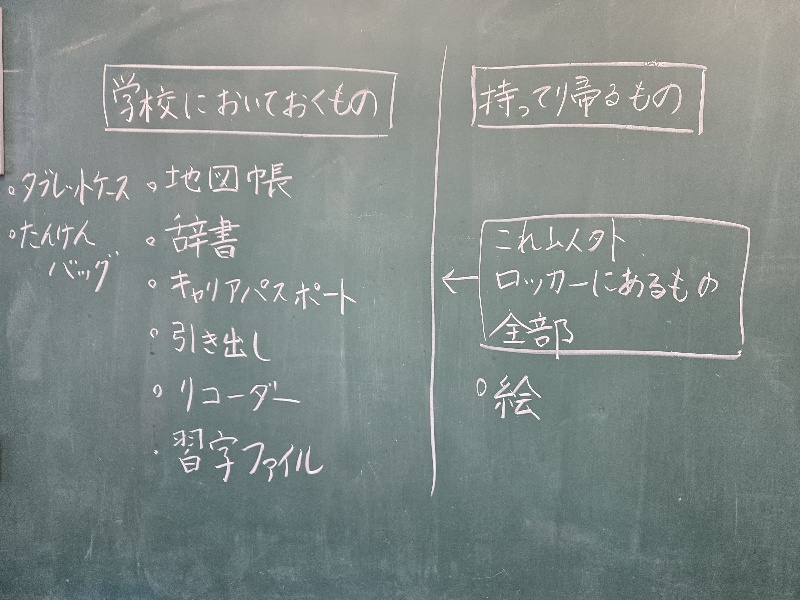 学校においておくもの
・タブレットケース
・たんけん
バッグ
・地図帳
・辞書
・キャリアパスポート
・引き出し
・リコーダー
・習字ファイル
持って帰るもの
←
これ以外
ロッカーにあるもの
全部
・絵